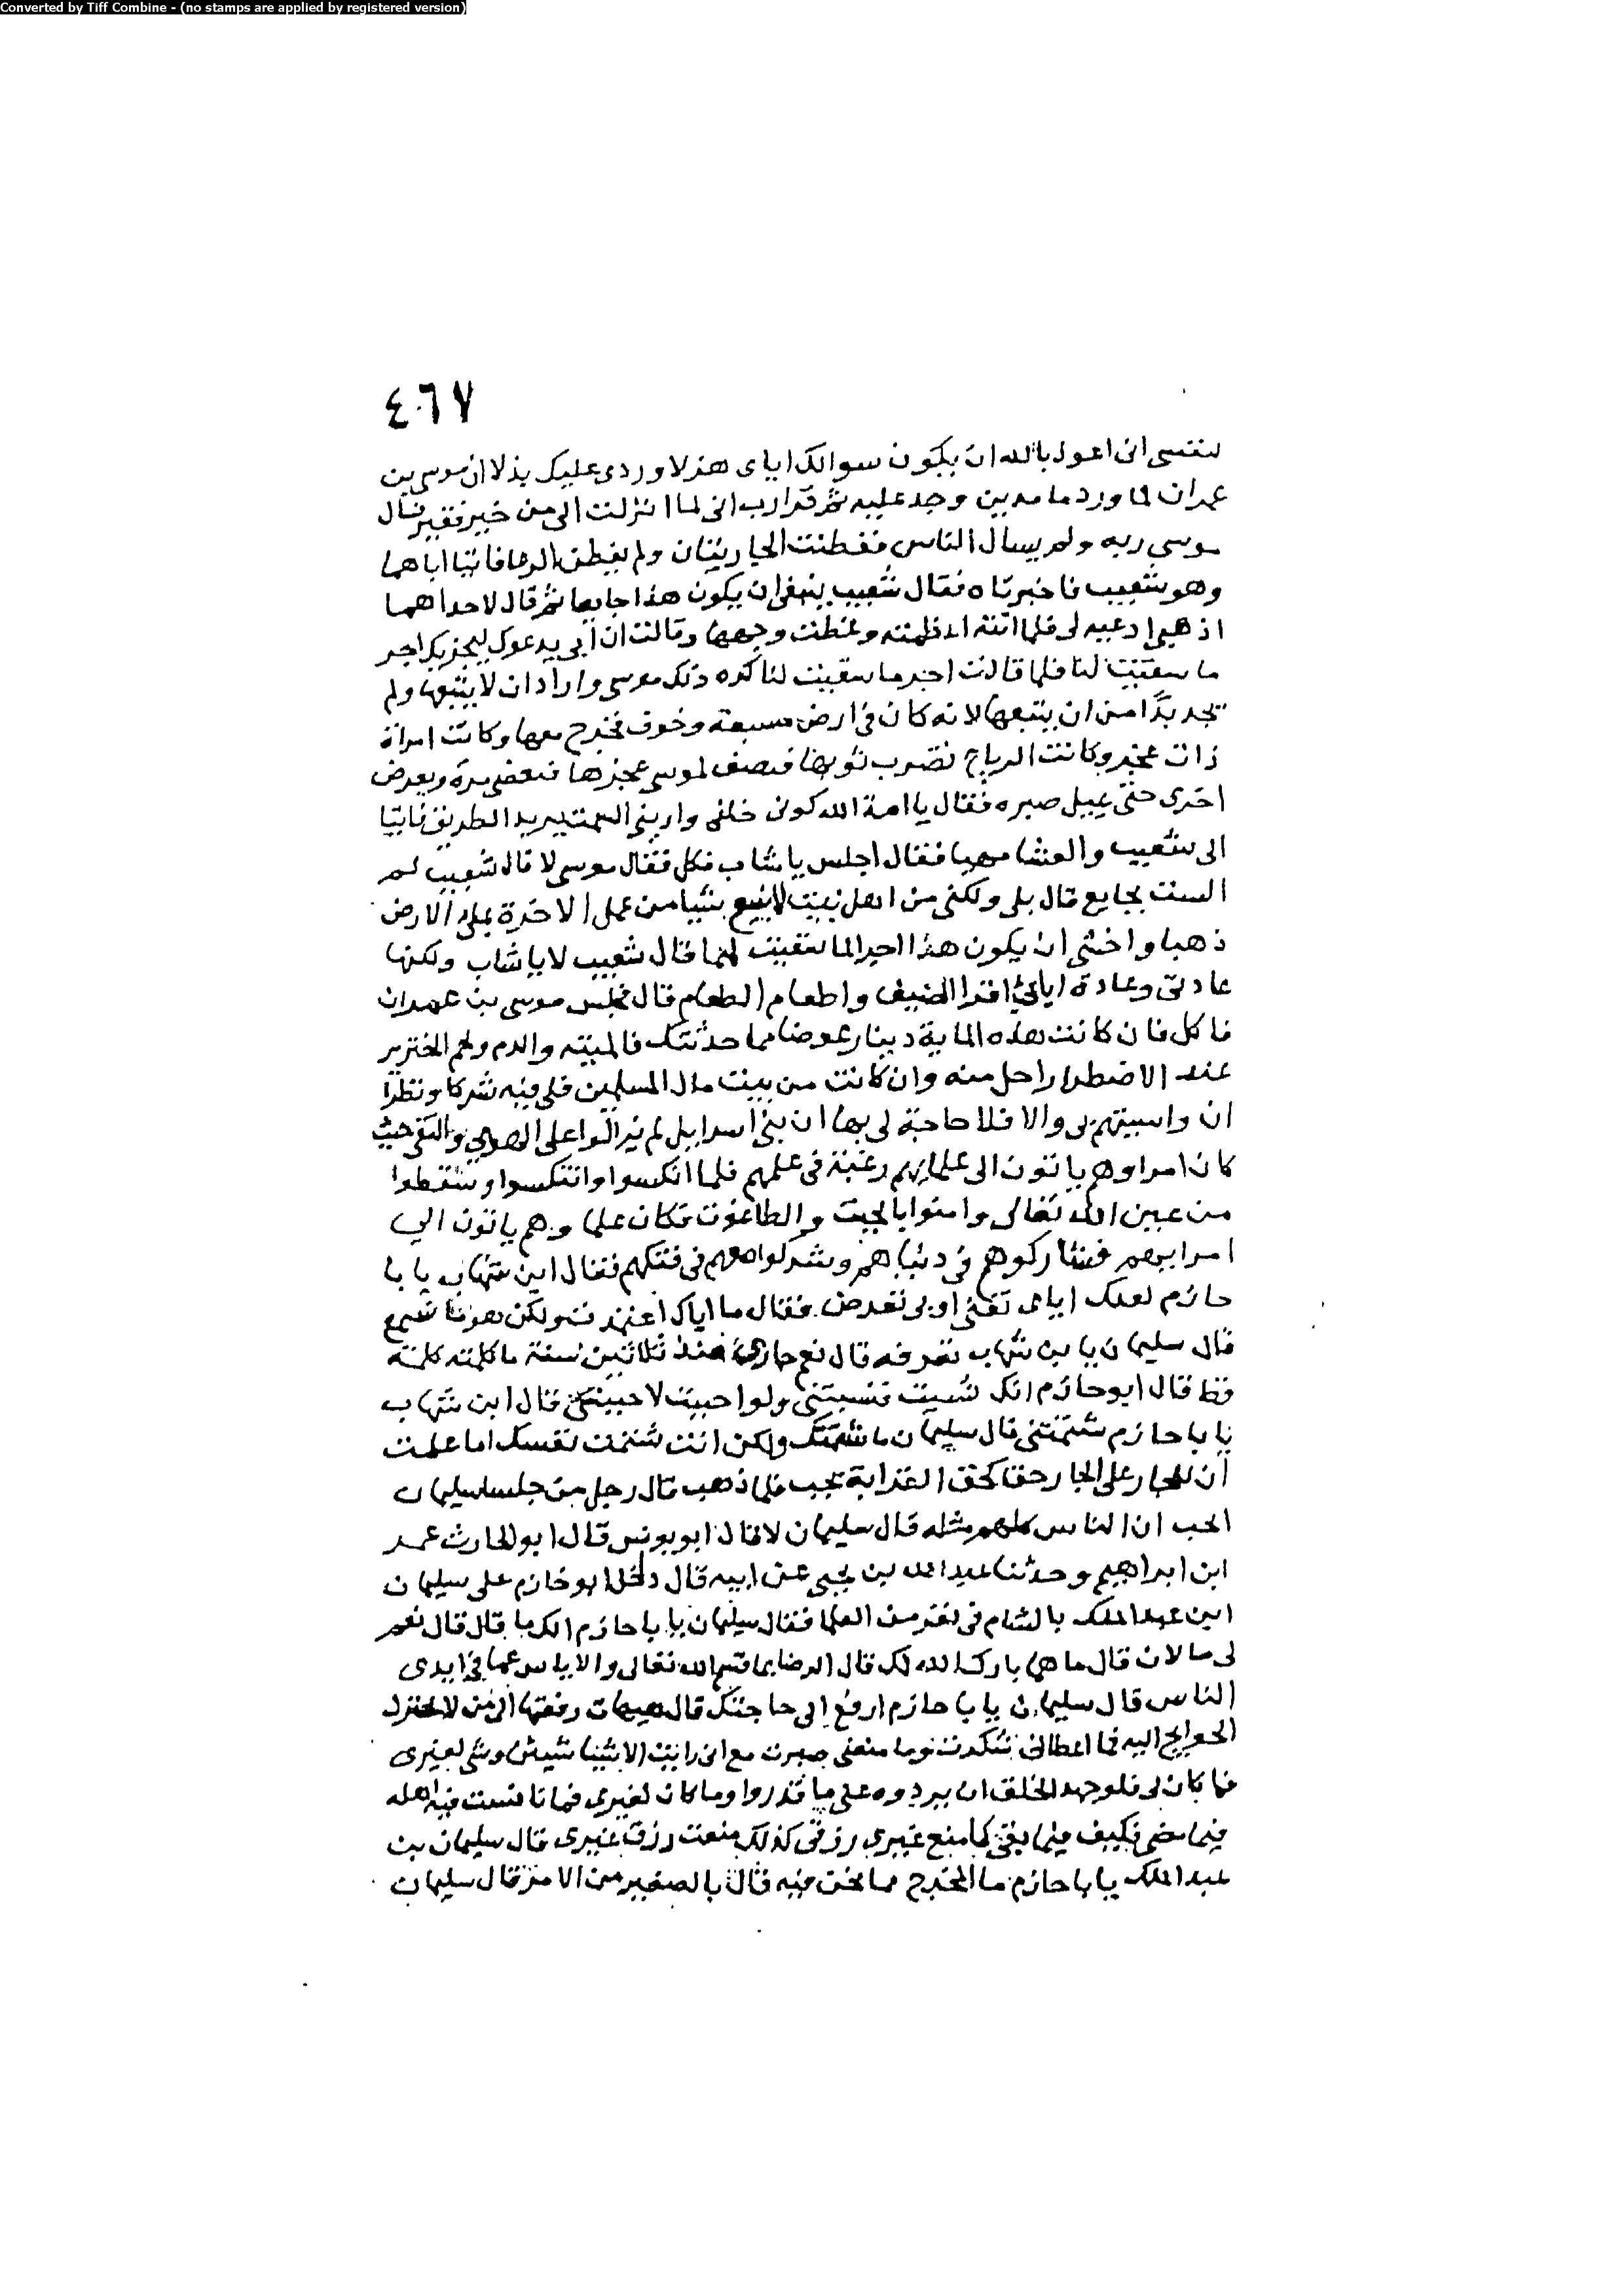 Converted by Tiff Combine - (no stamps are applied by registered version)
٤٦٧
لنفسى انى اعوذ بالله ان يكون سوالك اياى هزلا وردى عليك بذلا ان موسى بن
عمران لما ورد ما مدين وجد عليه ثم قرا رب انى لما انزلت الى من خير فقير فسال
موسى ربه ولم يسال الناس ففطنت الجاريتان ولم يفطن الرعا فاتيا اباهما
وهو شعيب فاخبرتاه فقال شعيب ينبغى ان يكون هذا جايعا ثم قال لاحداهما
اذهبى ادعيه لى فلما اتته اعظمته وغطت وجهها وقالت ان ابى يدعوك ليجزيك اجر
ما سقيت لنا فلما قالت اجر ما سقيت لنا كره ذلك موسى واراد ان لا يتبعها ولم
يجد بدا من ان يتبعها لانه كان فى ارض مسبعة وخوف فخرج معها وكانت امراة
ذات عجز وكانت الرياح تضرب ثوبها فتصف لموسى عجزها فيغضى مرة ويعرض
اخرى حتى عيل صبره فقال يا امة الله كونى خلفى وارينى السمت يريد الطريق فاتيا
الى شعيب والعشا مهيا فقال اجلس يا شاب فكل فقال موسى لا قال شعيب لم
الست بجايع قال بلى ولكنى من اهل بيت لا نبيع شيا من عمل الاخرة بملا الارض
ذهبا واخشى ان يكون هذا اجر لما سقيت لهما قال شعيب لا يا شاب ولكنها
عادتى وعادة اباى اقرا الضيف واطعام الطعام قال فجلس موسى بن عمران
فاكل فان كانت هذه الماية دينار عوضا مما حدثتك فالميته والدم ولحم الخنزير
عند الاضطرار احل منه وان كانت من بيت مال المسلمين فلى فيه شركا ونظرا
ان واسيتهم بى والا فلا حاجة لى بها ان بنى اسرايل لم يزالوا على الهدى والتقى حيث
كان امراوهم ياتون الى علمايهم رغبة فى علمهم فلما انكسوا وانتكسوا وسقطوا
من عين الله تعالى وامنوا بالجبت والطاغوت فكان علما وهم ياتون الى
امرايهم فشاركوهم فى دنياهم وشركوا معهم فى فتكهم فقال ابن شهاب يا با
حازم لعلك اياى تعنى او بى تعرض فقال ما اياك اعتمدت ولكن هو ما تسمع
قال سليمان يا بن شهاب تعرفه قال نعم جارى منذ ثلاثين سنة ما كلمته كلمة
قط قال ابو حازم انك نسيت فنسيتنى ولو احببت لاحببتنى قال ابن شهاب
يا با حازم شتمتنى قال سليمان ما شتمك ولكن انت شتمت نفسك اما علمت
ان للجار على الجار حقا كحق القرابة تجب فلما ذهب قال رجل من جلسا سليمان
اتحب ان الناس كلهم مثله قال سليمان لا قال ابو يونس قال ابو الحارث عمر
ابن ابراهيم وحدثنا عبد الله بن يحيى عن ابيه قال دخل ابو حازم على سليمان
ابن عبد الملك بالشام فى نفر من العلما فقال سليمان يا با حازم الك مال قال نعم
لى مالان قال ما هما بارك الله لك قال الرضا بما قسم الله تعالى والاياس عما فى ايدى
الناس قال سليمان يا با حازم ارفع الى حاجتك قال هيهات رفعتها الى من لا تختزل
الحوايج اليه فما اعطانى شكرت وما منعنى صبرت مع انى رايت الاشيا شيين وشى لغيرى
فما كان لى فلو جهد الخلق ان يردوه عنى ما قدروا وما كان لغيرى فما نافست فيه اهله
فيما مضى فكيف فيما بقى كما منع غيرى رزقى كذلك منعت رزق غيرى قال سليمان بن
عبد الملك يا با حازم ما المخرج مما نحن فيه قال بالصغير من الامر قال سليمان